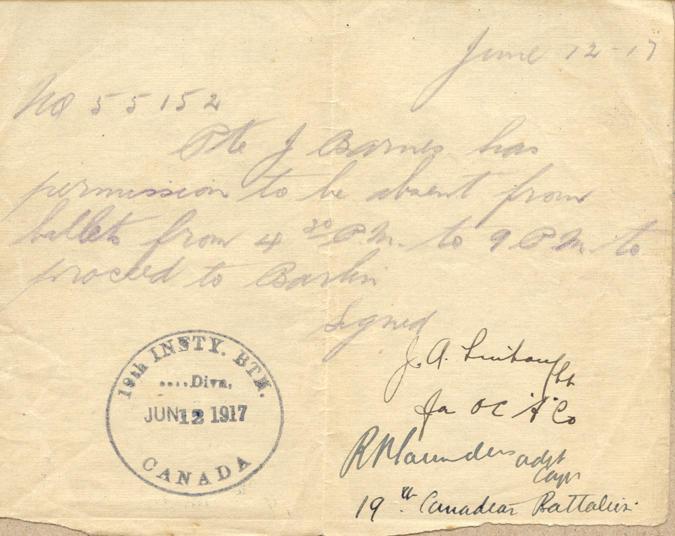 June 12-17
No 55152
Pte J Barnes has
permission to be absent from
billets from 4 30 P.M. to 9 P.M. to
proceed to Barlin
Signed
J. A.
for OC "A" Co
adjt
Capt
19th Canadian Battalion
19th INSTY. BTN.
....Divn.
JUN 12 1917
CANADA